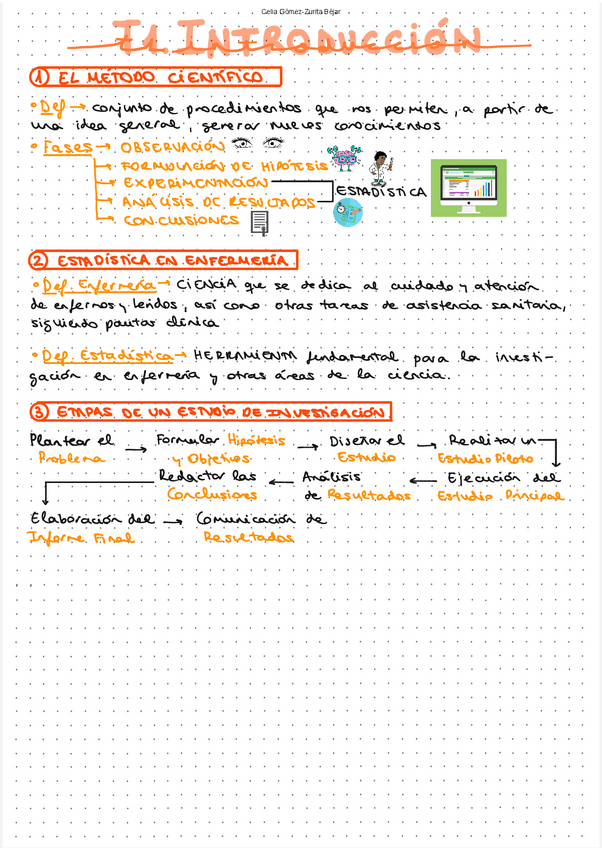 Celia Gómez-Zurita Béjar
T1. INTRODUCCIÓN
1 EL MÉTODO CIENTÍFICO
• Def → conjunto de procedimientos que nos permiten, a partir de
una idea general, generar nuevos conocimientos
• Fases → OBSERVACIÓN
→ FORMULACIÓN DE HIPÓTESIS
→ EXPERIMENTACIÓN
ESTADÍSTICA
→ ANÁLISIS DE RESULTADOS
→ CONCLUSIONES
2 ESTADÍSTICA EN ENFERMERÍA
• Def. Enfermería → CIENCIA que se dedica al cuidado y atención
de enfermos y heridos, así como otras tareas de asistencia sanitaria,
siguiendo pautas clínica
• Def. Estadística → HERRAMIENTA fundamental para la investi-
gación en enfermería y otras áreas de la ciencia.
3 ETAPAS DE UN ESTUDIO DE INVESTIGACIÓN
Plantear el → Formular Hipótesis → Diseñar el → Realizar un
Problema y Objetivos Estudio Estudio Piloto
Redactar las ← Análisis ← Ejecución del
Conclusiones de Resultados Estudio Principal
Elaboración del → Comunicación de
Informe Final Resultados